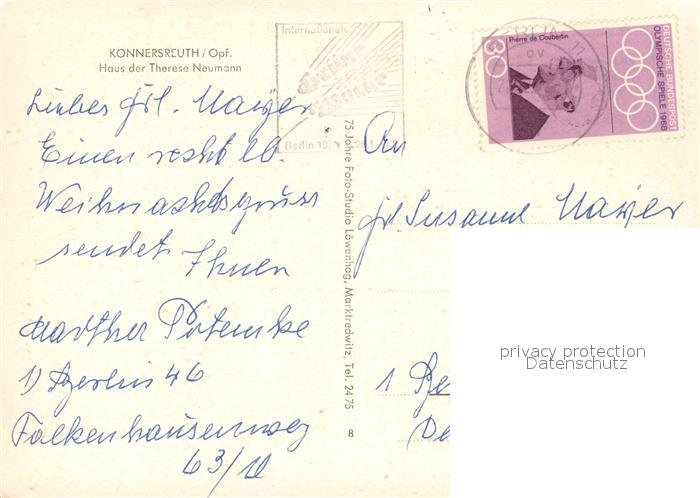 KONNERSREUTH / Opf.
Haus der Therese Neumann
Liebes Frl. Mayer
Einen recht lb.
Weihnachtsgruss
sendet Ihnen
Marther Potemke
1) Berlin 46
Falkenhausenweg
63/
75 Jahre Foto-Studio Löwenhag, Marktredwitz, Tel. 2475
8
Internationale
Grüne
Woche
Berlin 19
BERLIN 11
Pierre de Coubertin
30
DEUTSCHE BUNDESPOST
OLYMPISCHE SPIELE 1968
An
Frl. Susanne Mayer
1 Be
privacy protection
Datenschutz